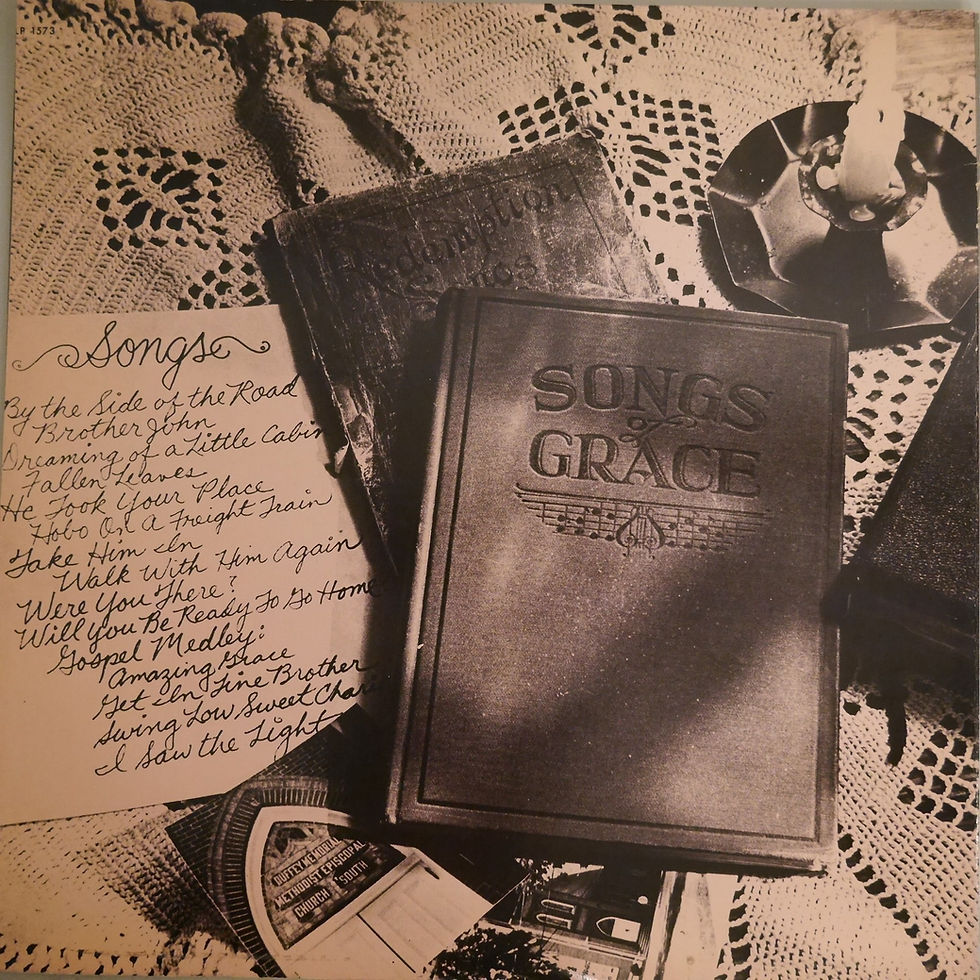 LP 1573
Redemption
Songs
SONGS
of
GRACE
Songs
By the Side of the Road
Brother John
Dreaming of a Little Cabin
Fallen Leaves
He Took Your Place
Hobo On A Freight Train
Take Him In
Walk With Him Again
Were You There?
Will You Be Ready To Go Home
Gospel Medley:
Amazing Grace
Get In Line Brother
Swing Low Sweet Chari
I Saw the Light
DUFFEY MEMORIAL
METHODIST EPISCOPAL
CHURCH SOUTH